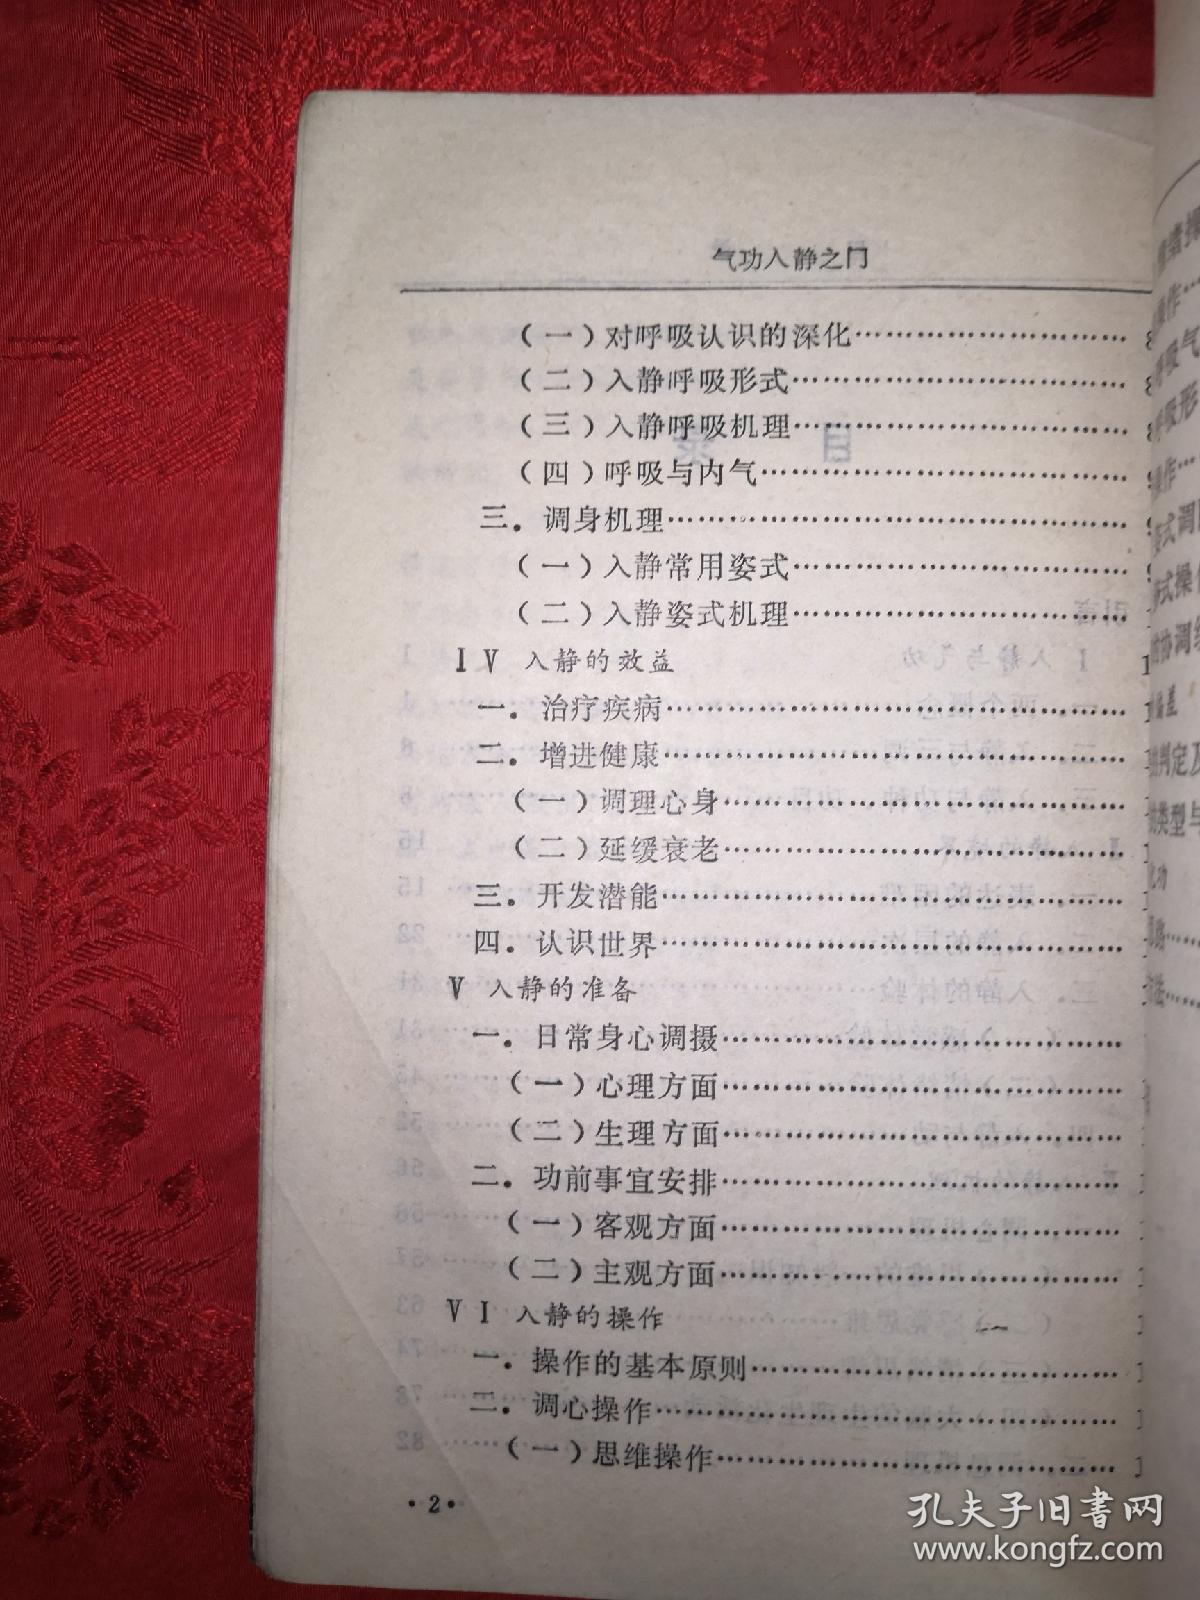 气功入静之门
（一）对呼吸认识的深化……………………… 8
（二）入静呼吸形式……………………………
（三）入静呼吸机理……………………………
（四）呼吸与内气………………………………
三．调身机理……………………………………
（一）入静常用姿式……………………………
（二）入静姿式机理……………………………
IV 入静的效益
一．治疗疾病……………………………………
二．增进健康……………………………………
（一）调理心身…………………………………
（二）延缓衰老…………………………………
三．开发潜能……………………………………
四．认识世界……………………………………
V 入静的准备
一．日常身心调摄………………………………
（一）心理方面…………………………………
（二）生理方面…………………………………
二．功前事宜安排……………………………… 1
（一）客观方面………………………………… 1
（二）主观方面………………………………… 1
VI 入静的操作 1
一．操作的基本原则…………………………… 1
二．调心操作…………………………………… 1
（一）思维操作………………………………… 1
·2·
操作…
吸气
呼吸形
操作…
姿式调
式操作
协调
偏差
判定及
类型与
孔夫子旧书网
www.kongfz.com